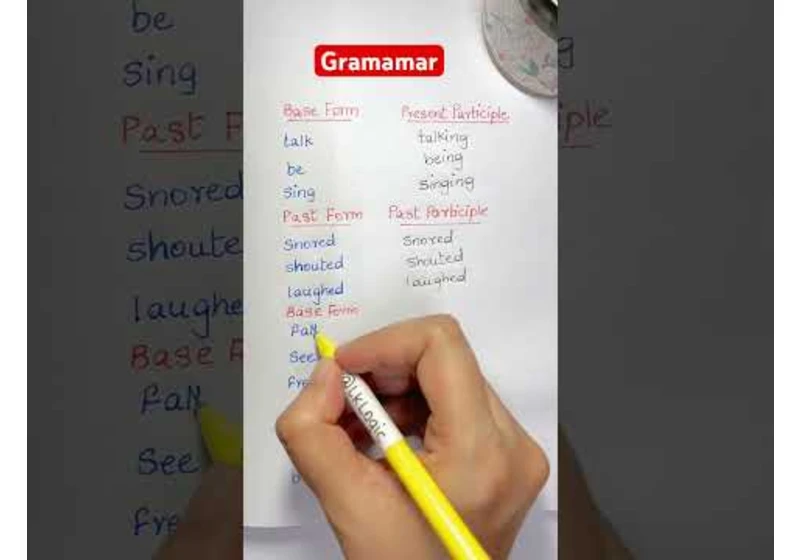 Gramamar
Base Form Present Participle
talk talking
be being
sing singing
Past Form Past Participle
Snored Snored
shouted Shouted
laughed laughed
Base Form
Fall
See
@LKLogic